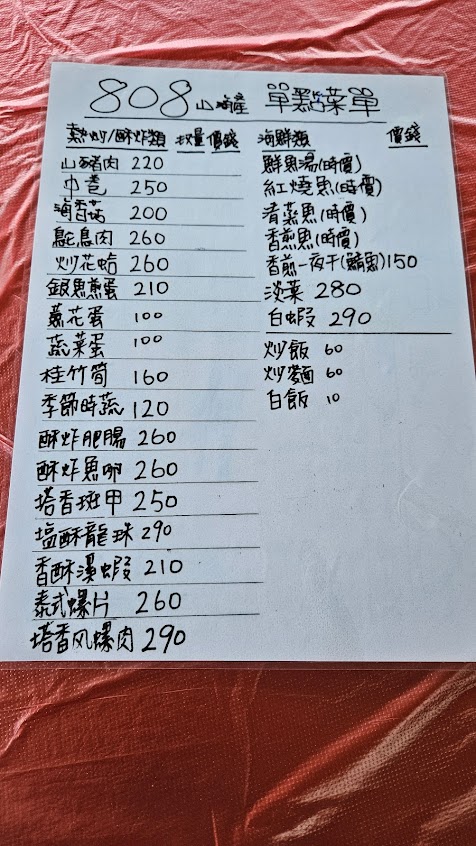 808山海產 單點菜單
熱炒/酥炸類 數量 價錢
山豬肉 220
中卷 250
海香菇 200
鴕鳥肉 260
炒花蛤 260
銀魚蔥蛋 210
蔥花蛋 100
蔬菜蛋 100
桂竹筍 160
季節時蔬 120
酥炸肥腸 260
酥炸魚卵 260
塔香斑甲 250
塩酥龍珠 290
香酥溪蝦 210
泰式螺片 260
塔香风螺肉 290
海鮮類 價錢
鮮魚湯(時價)
紅燒魚(時價)
清蒸魚(時價)
香煎魚(時價)
香煎一夜干(鯖魚)150
淡菜 280
白蝦 290
炒飯 60
炒麵 60
白飯 10